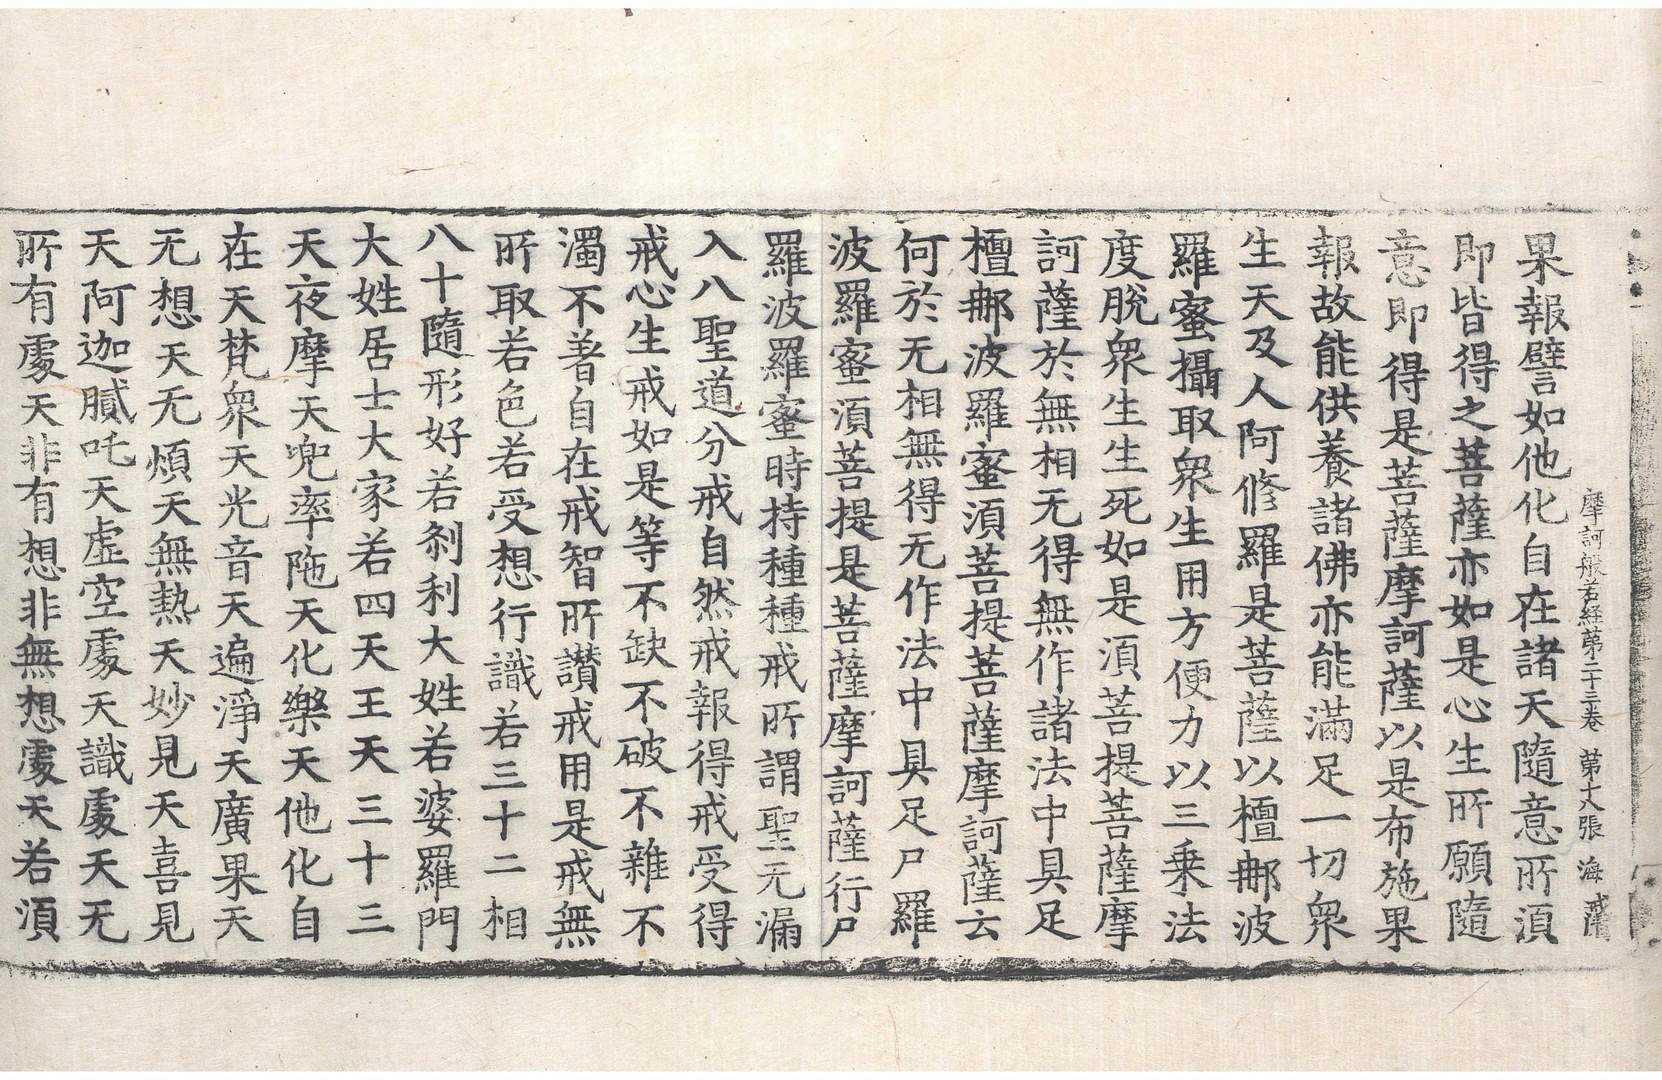 摩訶般若経苐二十三卷 苐十八張 海
果報譬如他化自在諸天隨意所湏
即皆得之菩薩亦如是心生所願隨
意即得是菩薩摩訶薩以是布施果
報故能供養諸佛亦能滿足一切衆
生天及人阿修羅是菩薩以檀𨚗波
羅蜜攝取衆生用方便力以三乗法
度脫衆生生死如是湏菩提菩薩摩
訶薩於無相无得無作諸法中具足
檀𨚗波羅蜜湏菩提菩薩摩訶薩云
何於无相無得无作法中具足尸羅
波羅蜜湏菩提是菩薩摩訶薩行尸
羅波羅蜜時持種種戒所謂聖无漏
入八聖道分戒自然戒報得戒受得
戒心生戒如是等不缺不破不雜不
濁不著自在戒智所讃戒用是戒無
所取若色若受想行識若三十二相
八十隨形好若刹利大姓若婆羅門
大姓居士大家若四天王天三十三
天夜摩天兜率陁天化樂天他化自
在天梵衆天光音天遍淨天廣果天
无想天无煩天無熱天妙見天喜見
天阿迦膩吒天虛空處天識處天无
所有處天非有想非無想處天若湏